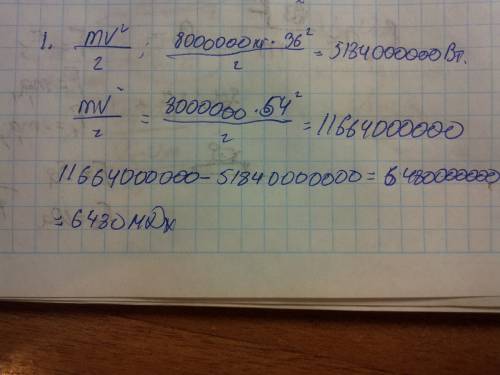 1. mv²/2 ; 8000000кг · 36²/2 = 5184000000Вт.
mv²/2 = 8000000 · 54²/2 = 11664000000
11664000000 - 51840000000 = 6480000000
= 6480 МДж